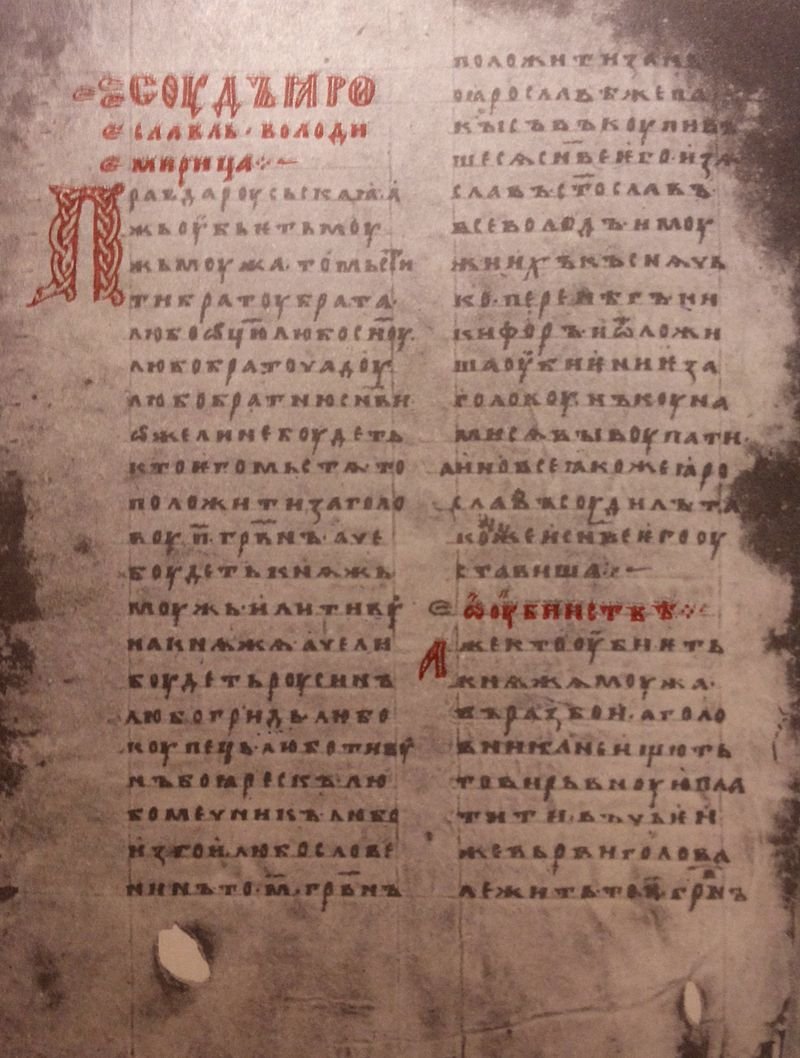 СОУДЪ ꙖРО
СЛАВЛЬ · ВОЛОДИ
МИРИЦА
Правда роусьскаꙗ · а
жь оубьеть моу
жь моужа · то мьсти
ти братоу брата ·
любо ѡцю любо сноу ·
любо братоучадоу
любо братню снви
ѡже ли не боудеть
кто ѥго мьстѧ · то
положити за голо
воу · п҃ · грвнъ · аче
боудеть кнѧжь
моужь · или тивоу
на кнѧжѧ · аче ли
боудеть роусинъ
любо гридь · любо
коупець · любо тивоу
нъ боꙗрескъ · лю
бо мечникъ · любо
изгои · любо слове
нинъ то · м҃ · грвнъ
положити за нь
по ꙗрославѣ же па
кы съвъкоупивъ
шесѧ снве ѥго · изѧ
славъ · стославъ ·
всеволодъ · и моу
жи ихъ къснѧчь
ко · перенѣгъ · ни
кифоръ · и ѿложи
ша оубиѥниѥ за
голову · нъ коуна
ми сѧ выкоупати ·
а ино все ꙗкоже ꙗро
славъ соудилъ та
коже и снве ѥго оу
ставиша
Ѡ ОУБИИСТВѢ
Аже кто оубиеть
кнѧжѧ моужа ·
въ разбои · а голо
вника не ищють
то вирьвноую пла
тити · въ чьѥи
же вьрви голова
лежить · то · п҃ · грвнъ